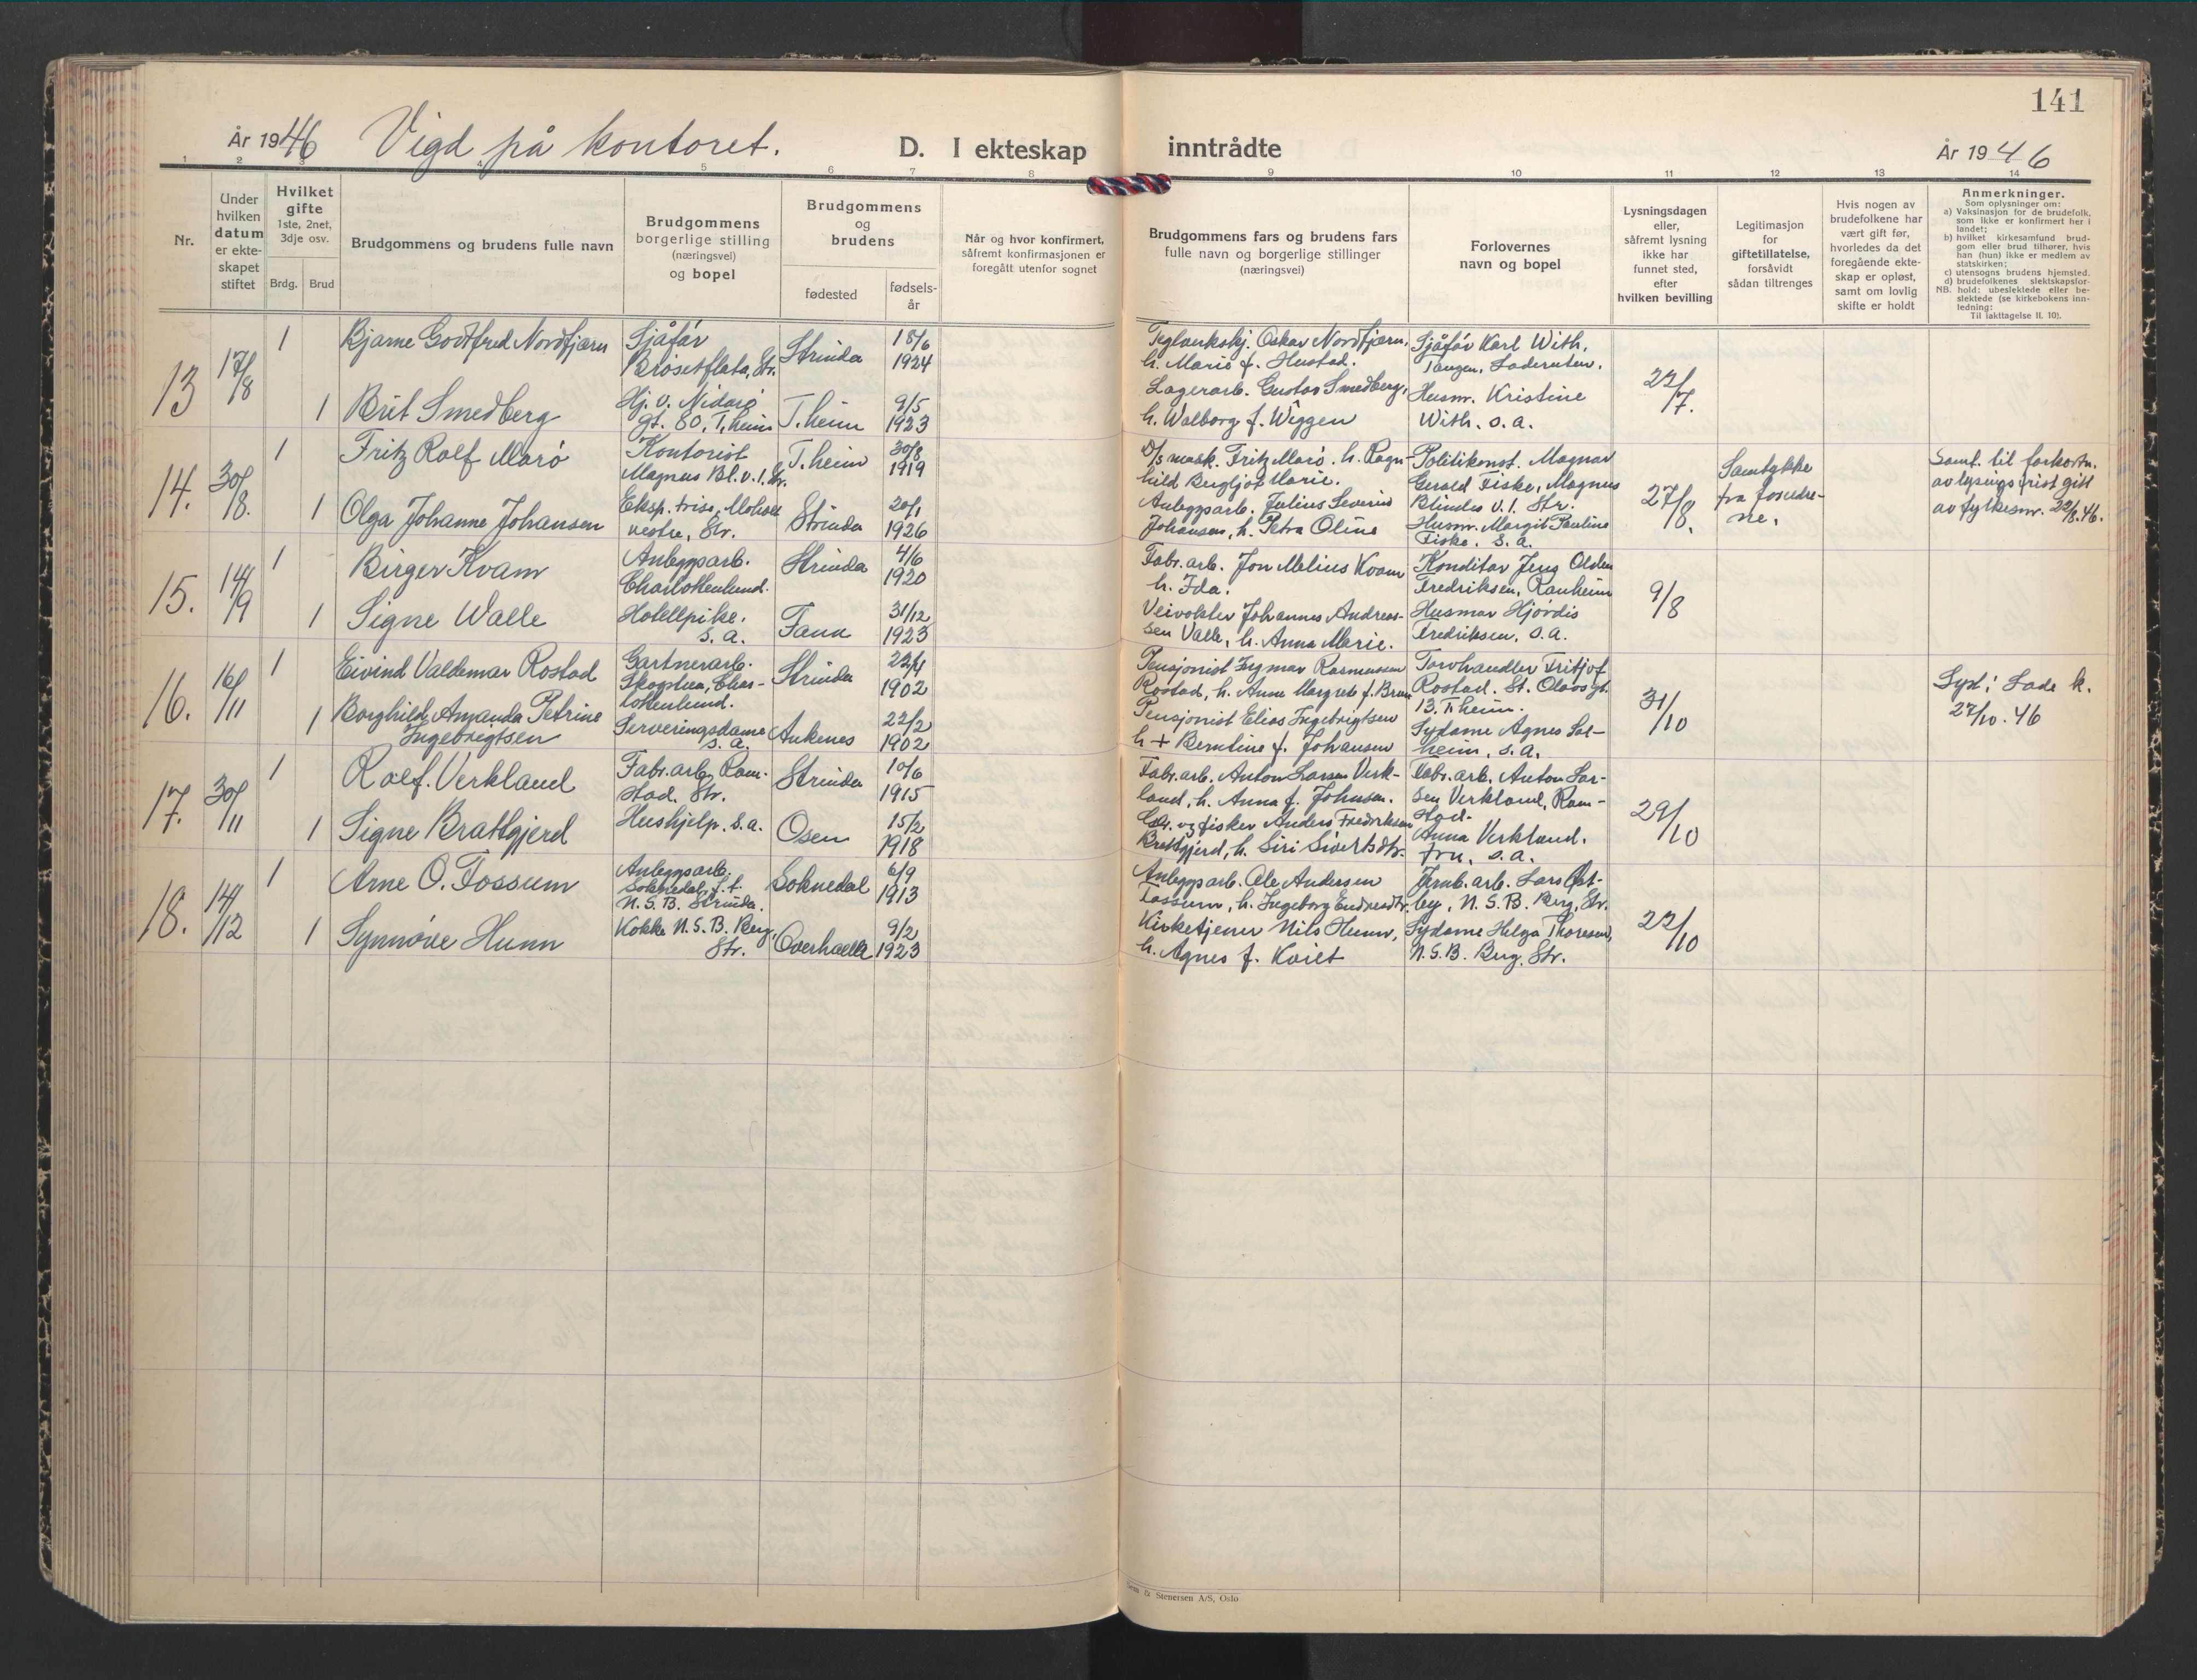 141
År 1946 Vigd på kontoret. D. I ekteskap inntrådte År 1946
1 2 3 4 5 6 7 8 9 10 11 12 13 14
Nr.
Under
hvilken
datum
er ekte-
skapet
stiftet
Hvilket
gifte
1ste, 2net,
3dje osv.
Brdg. Brud
Brudgommens og brudens fulle navn
Brudgommens
borgerlige stilling
(næringsvei)
og bopel
Brudgommens
og
brudens
fødested
fødsels-
år
Når og hvor konfirmert,
såfremt konfirmasjonen er
foregått utenfor sognet
Brudgommens fars og brudens fars
fulle navn og borgerlige stillinger
(næringsvei)
Forlovernes
navn og bopel
Lysningsdagen
eller,
såfremt lysning
ikke har
funnet sted,
efter
hvilken bevilling
Legitimasjon
for
giftetillatelse,
forsåvidt
sådan tiltrenges
Hvis nogen av
brudefolkene har
vært gift før,
hvorledes da det
foregående ekte-
skap er opløst,
samt om lovlig
skifte er holdt
Anmerkninger.
Som oplysninger om:
a) Vaksinasjon for de brudefolk,
som ikke er konfirmert her i
landet;
b) hvilket kirkesamfund brud-
gom eller brud tilhører, hvis
han (hun) ikke er medlem av
statskirken;
c) utensogns brudens hjemsted.
d) brudefolkenes slektskapsfor-
NB. hold: ubeslektede eller be-
slektede (se kirkebokens inn-
ledning:
Til iakttagelse II. 10).
13 17/8
1 Bjarne Godtfred Nordfjærn
Sjåfør
Brøsetflata, Str.
Strinda
18/6
1924
Oskar Nordfjærn,
h. Marie f. Hustad.
Sjåfør Karl With,
Tangen, Laderuten.
22/7.
1 Brit Smedberg
Hj. v. Nidarø
gt. 80, T.heim
T.heim
9/5
1923
Lagerarb. Gustav Smedberg,
h. Walborg f. Wiggen
Husm. Kristine
With. s.a.
14. 30/8.
1 Fritz Rolf Marø
Kontorist
Magnus Bl.v.1. Str.
T.heim
30/8
1919
mask. Fritz Marø. h. Ragn-
hild Bergljot Marie.
Politikonst. Magnar
Gerald Fiske, Magnus
Blindes v.1. Str.
27/8.
Samtykke
fra foreldre-
ne.
Samt. til forkortn.
av lysningsfrist gitt
av fylkesm. 22/8.46.
1 Olga Johanne Johansen
Eksp. trise, Moholt
vestre, Str.
Strinda
20/1
1926
Anleggsarb. Julius Severin
Johansen, h. Petra Oline
Husm. Margit Pauline
Fiske. s.a.
15. 14/9
1 Birger Kvam
Anleggsarb.
Charlottenlund.
Strinda
4/6
1920
Fabr. arb. Jon Melius Kvam
h. Ida.
Konditor Jens Olden
Fredriksen, Ranheim
9/8
1 Signe Walle
Hotellpike.
s.a.
Fana
31/12
1923
Veivokter Johannes Andreas-
sen Valle, h. Anna Marie.
Husmor Hjørdis
Fredriksen, s.a.
16. 16/11
1 Eivind Valdemar Rostad
Gartnerarb.
Skogstua, Char-
lottenlund.
Strinda
1902
Pensjonist Ingmar Rasmussen
Rostad, h. Anne Margrete f. Brun
Torvhandler Fritjof
Rostad. St. Olavsgt.
13. T.heim.
31/10
Lyst i Lade k.
27/10.46
1 Borghild Amanda Petrine
Ingebrigtsen
Serveringsdame
s.a.
Ankenes
22/2
1902
Pensjonist Elias Ingebrigtsen
h + Berntine f. Johansen
Sydame Agnes Sol-
heim, s.a.
17. 30/11
1 Rolf Verkland
Fabr.arb. Ram-
stad. Str.
Strinda
10/6
1915
Fabr.arb. Anton Larsen Verk-
land, h. Anna f. Johnsen.
Fabr. arb. Anton Lar-
sen Verkland, Ram-
stad.
29/10
1 Signe Brattgjerd
Hushjelp. s.a.
Osen
15/2
1918
og fisker Anders Fredriksen
Brattgjerd, h. Siri Sivertsdtr.
Anna Verkland.
fru. s.a.
18. 14/12
1 Arne O. Fossum
Anleggsarb.
Soknedal, f.t.
N.S.B. Strinda.
Soknedal
6/9
1913
Anleggsarb. Ole Andersen
Fossum, h. Ingeborg Endresdtr.
Jernb. arb. Lars Øst-
by, N.S.B. Berg, Str.
22/10
1 Synnøve Hunn
Kokke N.S.B. Berg,
Str.
Overhalla
9/2
1923
Kirketjener Nils Hunn,
h. Agnes f. Kvilt
Sydame Helga Thoresen,
N.S.B. Berg, Str.
& Stenersen A/S, Oslo